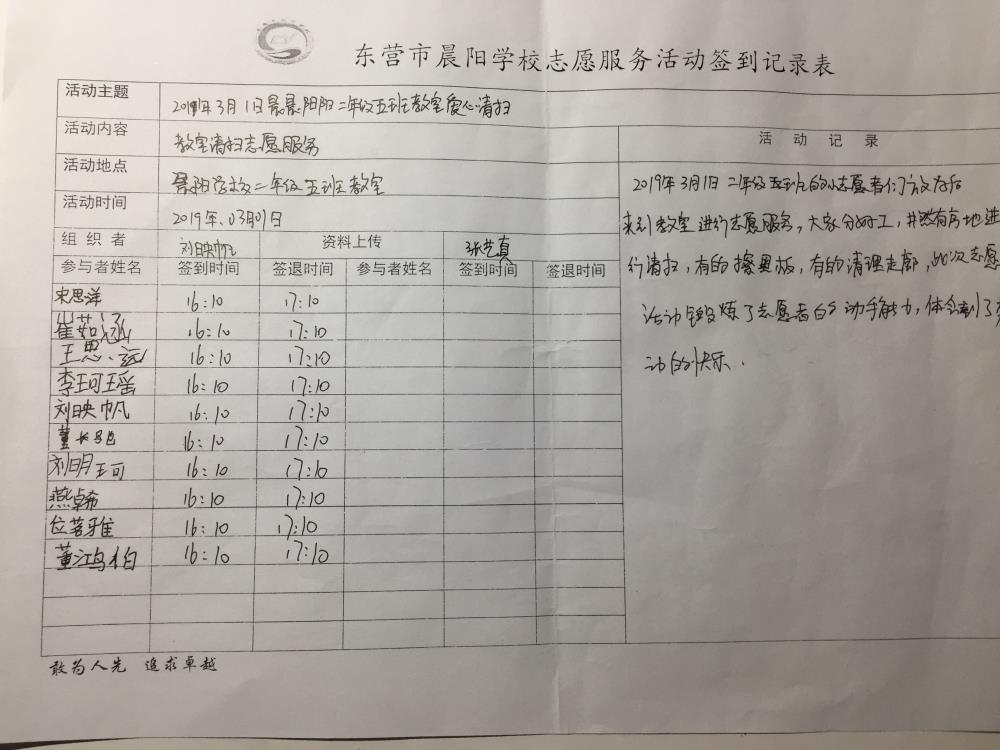 东营市晨阳学校志愿服务活动签到记录表
活动主题 2019年3月1日晨晨阳阳二年级五班教室爱心清扫
活动内容 教室清扫志愿服务
活动地点 晨阳学校二年级五班教室
活动时间 2019年.03月01日
组织者 刘映帆 资料上传 张艺真
参与者姓名 签到时间 签退时间 参与者姓名 签到时间 签退时间
宋思洋 16:10 17:10
崔茹涵 16:10 17:10
王思远 16:10 17:10
李珂瑶 16:10 17:10
刘映帆 16:10 17:10
董长 16:10 17:10
刘明珂 16:10 17:10
燕卓希 16:10 17:10
位若雅 16:10 17:10
董江鸿柏 16:10 17:10
活动记录
2019年3月1日二年级五班的小志愿者们放学后
来到教室进行志愿服务,大家分好工,井然有序地进
行清扫,有的擦黑板,有的清理走廊,此次志愿
活动锻炼了志愿者的动手能力,体会到了
动的快乐.
敢为人先 追求卓越